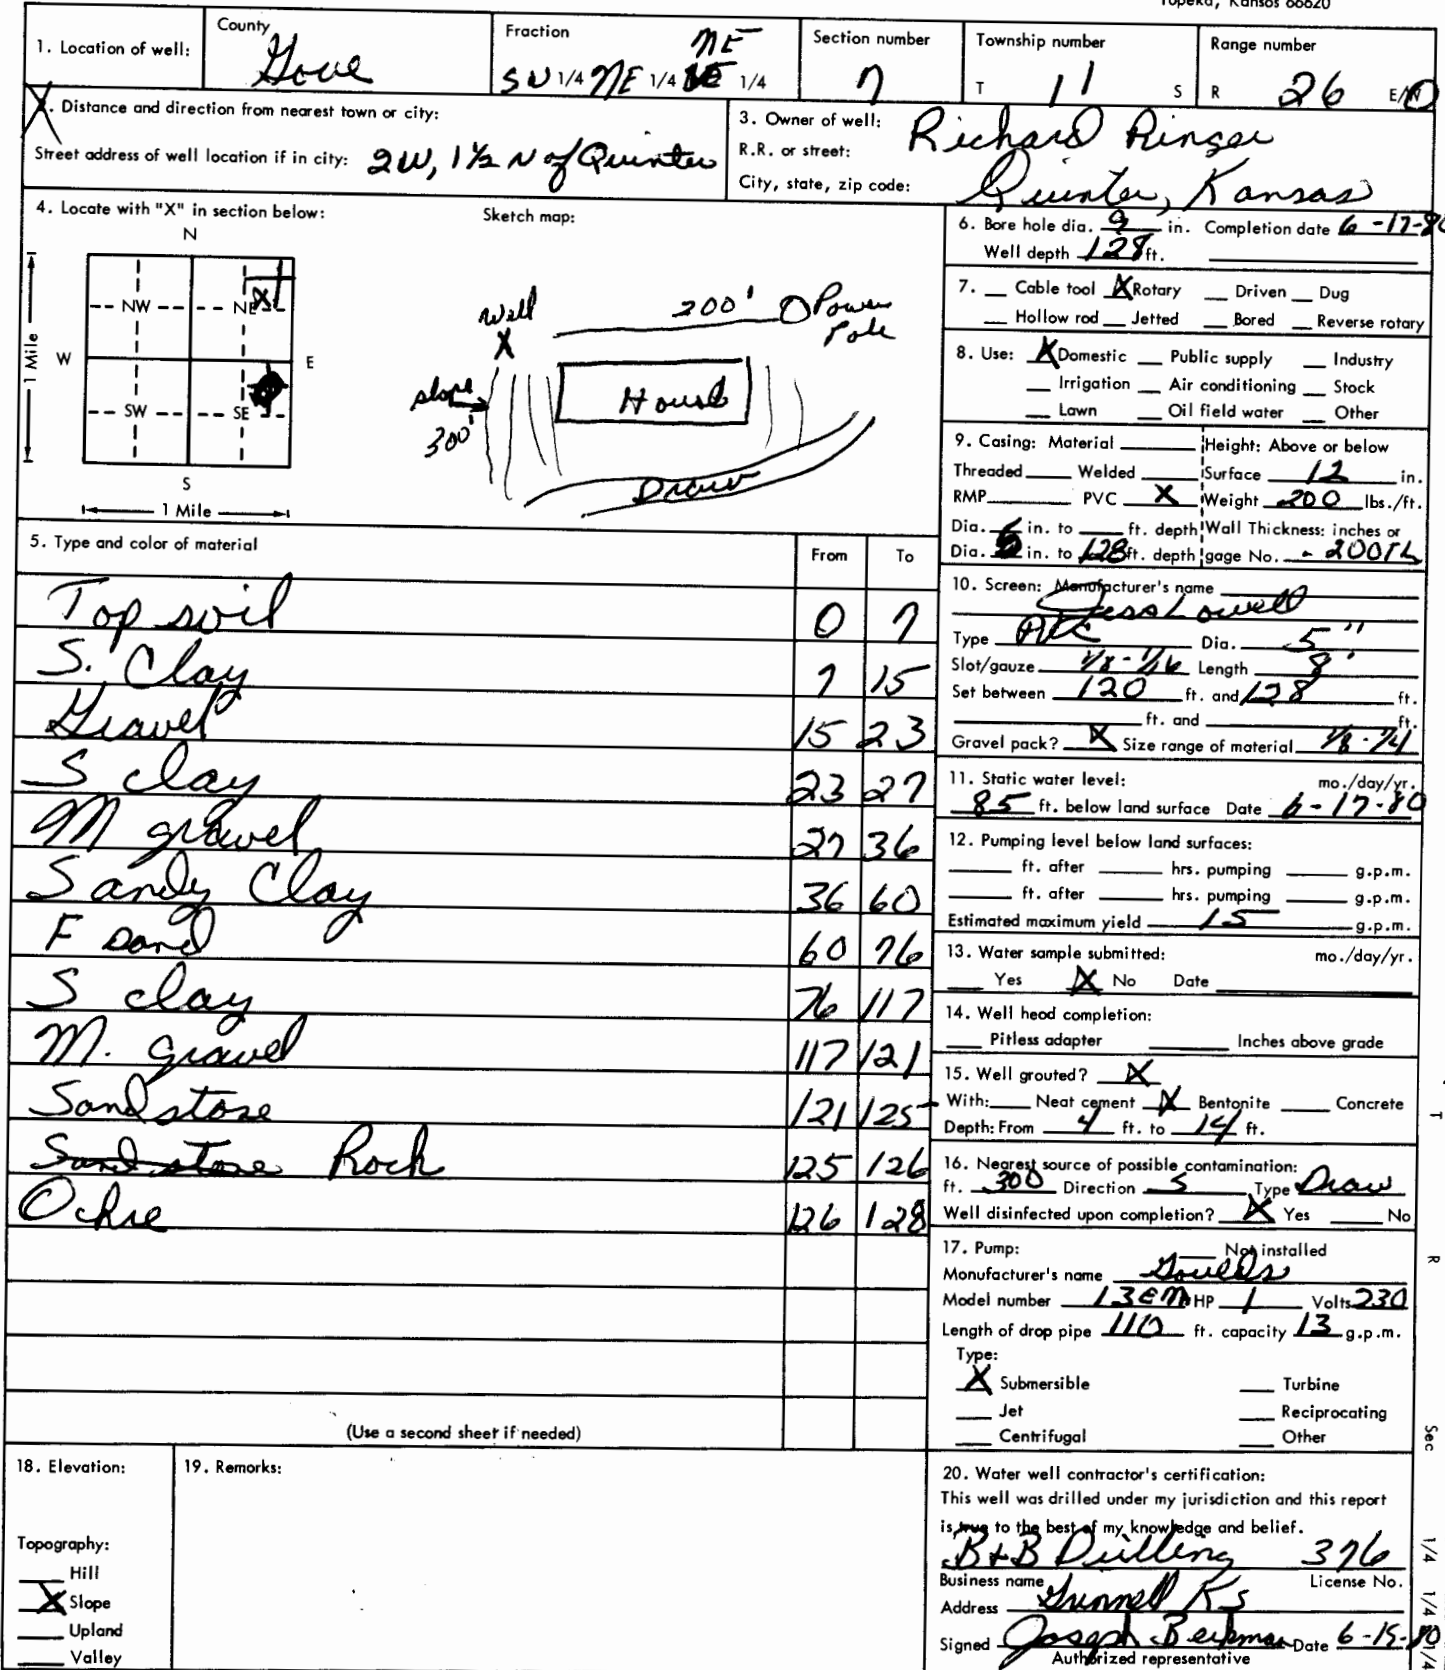 Topeka, Kansas 66620
1. Location of well: County Gove Fraction NE SW 1/4 NE 1/4 1/4 Section number 7 Township number T 11 S Range number R 26 E/W
2. Distance and direction from nearest town or city:
Street address of well location if in city: 2W, 1½ N of Quinter
3. Owner of well: Richard Ringer
R.R. or street:
City, state, zip code: Quinter, Kansas
4. Locate with "X" in section below:
N
NW NE
W E
SW SE
S
1 Mile
1 Mile
Sketch map:
Well X
200' Power Pole
slope
300'
House
Draw
5. Type and color of material From To
Top soil 0 7
S. Clay 7 15
Gravel 15 23
S clay 23 27
M gravel 27 36
Sandy Clay 36 60
F sand 60 76
S clay 76 117
M. gravel 117 121
Sandstone 121 125
Sandstone Rock 125 126
Ochre 126 128
(Use a second sheet if needed)
6. Bore hole dia. 9 in. Completion date 6-17-80
Well depth 128 ft.
7. __ Cable tool X Rotary __ Driven __ Dug
__ Hollow rod __ Jetted __ Bored __ Reverse rotary
8. Use: X Domestic __ Public supply __ Industry
__ Irrigation __ Air conditioning __ Stock
__ Lawn __ Oil field water __ Other
9. Casing: Material ____ Height: Above or below
Threaded ____ Welded ____ Surface 12 in.
RMP ____ PVC X Weight 200 lbs./ft.
Dia. in. to ____ ft. depth Wall Thickness: inches or
Dia. in. to 128 ft. depth gage No. .200Th
10. Screen: Manufacturer's name
Jess Lowell
Type PVC Dia. 5"
Slot/gauze 1/8-1/16 Length 8'
Set between 120 ft. and 128 ft.
____ ft. and ____ ft.
Gravel pack? X Size range of material 1/8-1/4
11. Static water level: mo./day/yr.
85 ft. below land surface Date 6-17-80
12. Pumping level below land surfaces:
____ ft. after ____ hrs. pumping ____ g.p.m.
____ ft. after ____ hrs. pumping ____ g.p.m.
Estimated maximum yield 15 g.p.m.
13. Water sample submitted: mo./day/yr.
__ Yes X No Date ____
14. Well head completion:
__ Pitless adapter ____ Inches above grade
15. Well grouted? X
With: __ Neat cement X Bentonite __ Concrete
Depth: From 4 ft. to 14 ft.
16. Nearest source of possible contamination:
ft. 300 Direction S Type Draw
Well disinfected upon completion? X Yes __ No
17. Pump: __ Not installed
Manufacturer's name Goulds
Model number 13EM HP 1 Volts 230
Length of drop pipe 110 ft. capacity 13 g.p.m.
Type:
X Submersible __ Turbine
__ Jet __ Reciprocating
__ Centrifugal __ Other
18. Elevation:
Topography:
__ Hill
X Slope
__ Upland
__ Valley
19. Remarks:
20. Water well contractor's certification:
This well was drilled under my jurisdiction and this report
is true to the best of my knowledge and belief.
B+B Drilling 376
Business name License No.
Address Grinnell Ks
Signed Joseph Date 6-15-80
Authorized representative
T
R
Sec
1/4 1/4 1/4